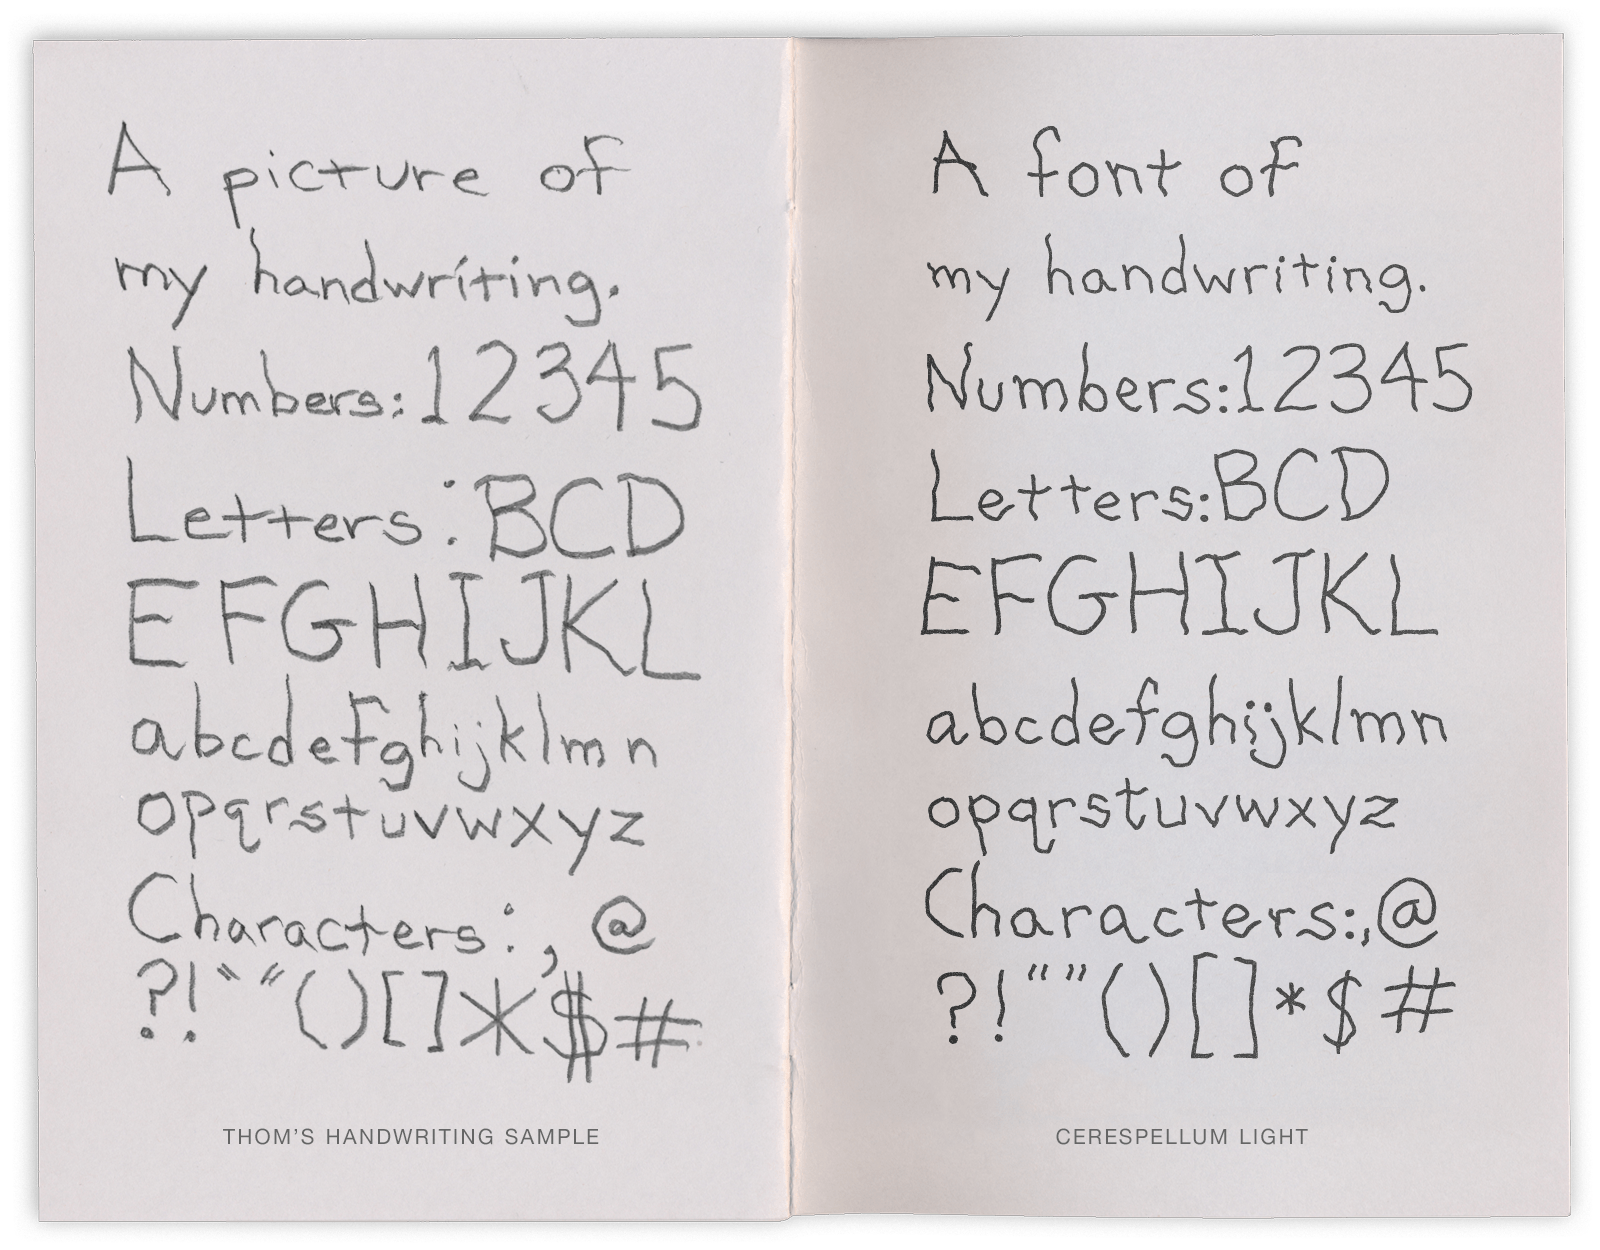 A picture of
my handwriting.
Numbers: 1 2 3 4 5
Letters: BCD
E F G H I J K L
a b c d e f g h i j k l m n
o p q r s t u v w x y z
Characters: , @
?! " " ( ) [ ] * $ #
THOM'S HANDWRITING SAMPLE
A font of
my handwriting.
Numbers:12345
Letters:BCD
EFGHIJKL
abcdefghijklmn
opqrstuvwxyz
Characters:,@
?!“”()[]*$#
CERESPELLUM LIGHT